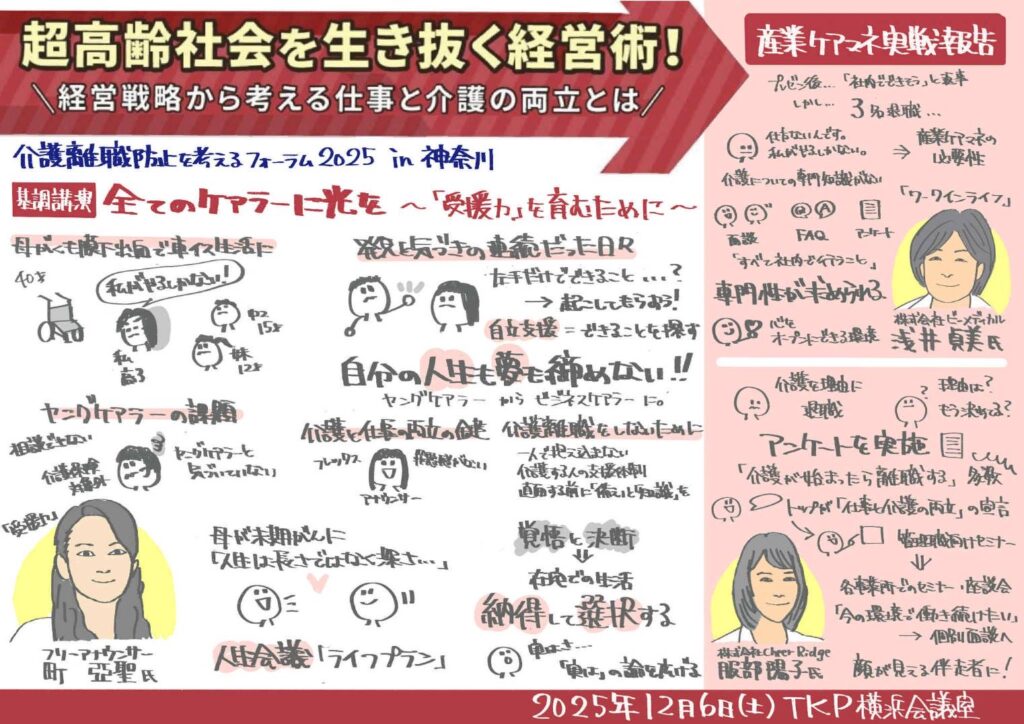 超高齢社会を生き抜く経営術！
＼経営戦略から考える仕事と介護の両立とは／
介護離職防止を考えるフォーラム2025 in 神奈川
基調講演 全てのケアラーに光を 〜「受援力」を育むために〜
母がくも膜下出血で車イス生活に
40才
私がやるしかない!
私
高3
中2
15才
妹
12才
発見と気づきの連続だった日々
左手だけでできること...?
→ 起こしてもらおう!
自立支援 = できることを探す
自分の人生も夢も諦めない!!
ヤングケアラー から ビジネスケアラー に。
ヤングケアラーの課題
相談できない
介護保険
対象外
ヤングケアラーと
気づいていない
介護と仕事の両立の鍵
フレックス
アナウンサー
介護離職をしないために
一人で抱え込まない
介護する人の支援体制
直面する前に「備え」と「知識」を
「受援力」
フリーアナウンサー
町 亞聖氏
母が末期がんに
「人生は長さではなく深さ...」
人生会議「ライフプラン」
覚悟と決断
⇓
在宅での生活
納得して選択する
実はさ…
「実は」の輪を広げる
産業ケアマネ実戦報告
プレゼン後... 「社内でできそう」と返事
しかし... 3名退職...
仕方ないんです。
私がやるしかない。
⇒ 産業ケアマネの
必要性
介護についての専門知識がない
面談
Q&A
FAQ
アンケート
「ワークインライフ」
「すべて社内で行うこと」
専門性が求められる
心を
オープンにできる環境
株式会社ビーメディカル
浅井貞美氏
介護を理由に
退職
?
理由は?
もう決めてる?
アンケートを実施
「介護が始まったら離職する」多数
トップが「仕事と介護の両立」の宣言
管理職向けセミナー
⇓
各事業所でのセミナー・座談会
「今の環境で働き続けたい」
→ 個別面談へ
顔が見える伴走者に!
株式会社Cheer Ridge
服部陽子氏
2025年12月6日(土) TKP横浜会議室